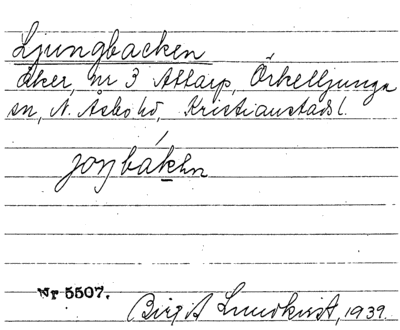 Ljungbacken
åker, nr 3 Attarp, Örkelljunga
sn, N. Åsbo hd, Kristianstads l.
joŋbákən
Nr 5507.
Birgit Lundkvist, 1939.